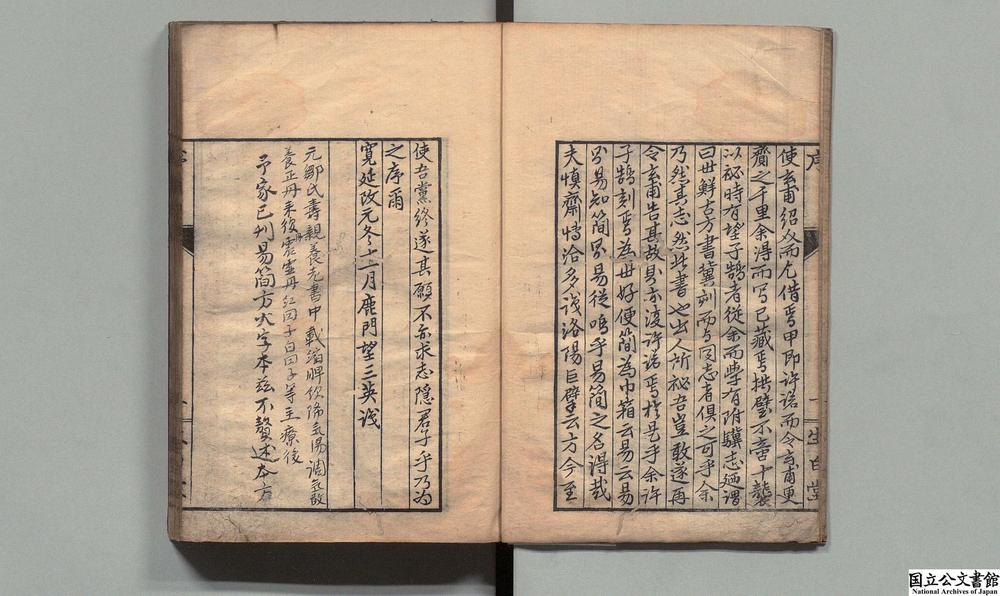 序
使玄甫紹以而乞借焉甲即許諾而令玄甫更
齎之千里余得而写已藏焉拱璧不啻十襲
以祕時有望子鵠者從余而學有附驥志廼謂
曰世鮮古方書冀刻而与同志者俱之可乎余
乃然其志然此書也出人所祕吾豈敢遂再
令玄甫告其故具亦復許諾焉於是乎余許
子鵠刻焉為世好便簡為巾箱云易云易
則易知簡則易從嗚乎易簡之名得哉
夫慎齋博洽多識洛陽巨璧云方今至
生白堂
使吾黨終遂其願不亦求志隱君子乎乃為
之序爾
寬延改元冬十二月鹿門望三英識
元鄒氏壽親養老書中載縮脾飲降氣湯調氣散
養正丹来復丹震霊丹紅円子白円子等主療後
予家已刊易簡方大字本茲不贅述本方
国立公文書館
National Archives of Japan